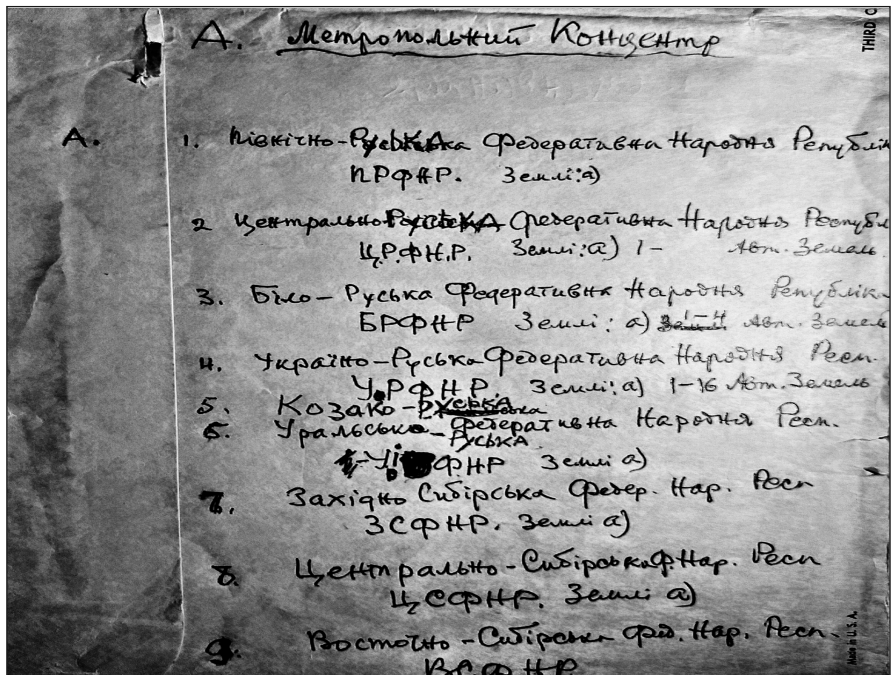 А. Метропольний Концентр
THIRD C
А. 1. Північно-Руська Федеративна Народня Републік
ПРФНР. Землі: а)
2 Центрально-Руська Федеративна Народня Републ
Ц.Р.Ф.Н.Р. Землі: а) 1- Авт. Земель.
3. Біло-Руська Федеративна Народня Републіка
БРФНР Землі: а) 1-4 Авт. Земель
4. Україно-Руська Федеративна Народня Респ.
У.РФНР. Землі: а) 1-16 Авт. Земель
5. Козако-Руська
6. Уральсько-Руська Федеративна Народня Респ.
ФНР Землі а)
7. Західно Сибірська Федер. Нар. Респ
ЗСФНР. Землі а)
8. Центрально-Сибірська Ф Нар. Респ
ЦСФНР. Землі а)
9. Восточно-Сибірська Фед. Нар. Респ.
ВСФНР
Made in U.S.A.